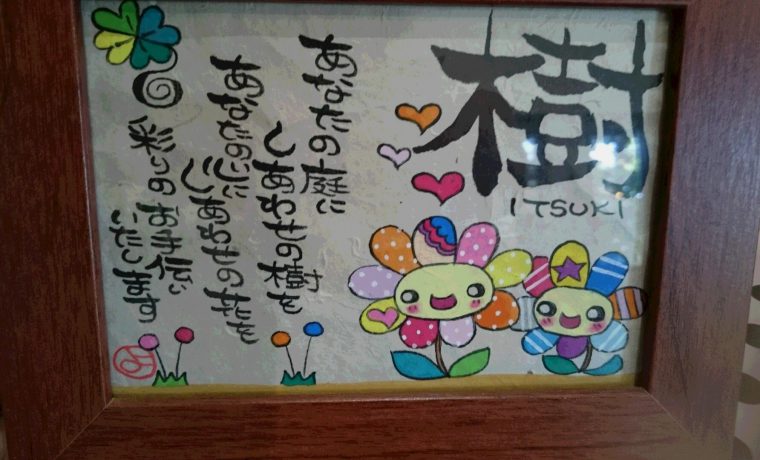 樹
ITSUKI
あなたの庭に
しあわせの樹を
あなたの心に
しあわせの花を
彩りのお手伝い
いたします